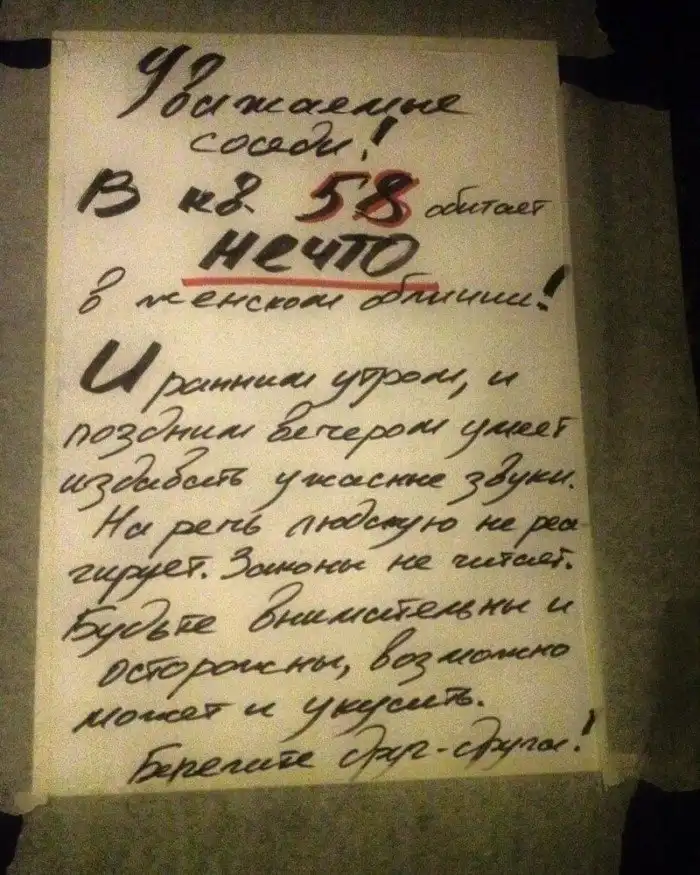 Уважаемые
соседи!
В кв. 58 обитает
НЕЧТО
в женском обличии!
И ранним утром, и
поздним вечером умеет
издавать ужасные звуки.
На речь людскую не реа-
гирует. Законы не читает.
Будьте внимательны и
осторожны, возможно
может и укусить.
Берегите друг-друга!